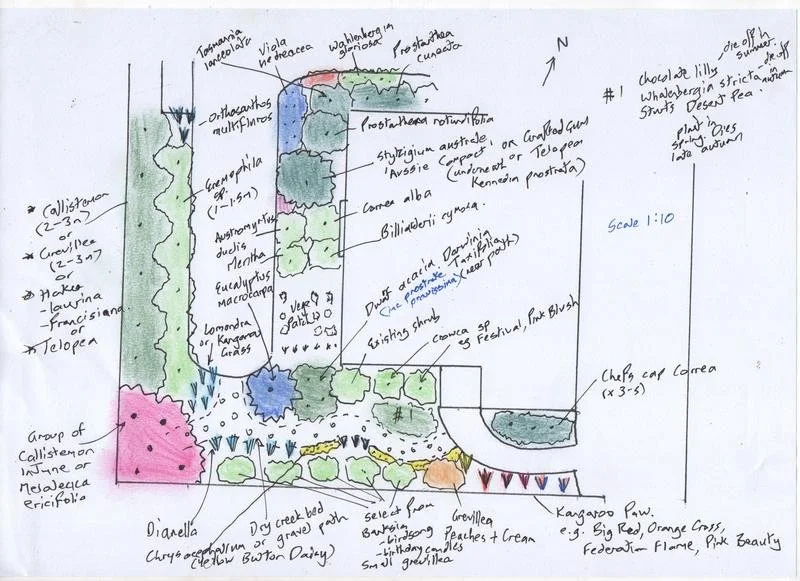 Tasmania
lanceolata
Viola
hederacea
Wahlenbergia
gloriosa
Prostanthera
cuneata
N
#1
Chocolate lilly
die off in
summer
Whalenbergin stricta
die off
in
autumn
Sturts Desert pea.
plant in
spring. Dies
late autumn
Orthosanthos
multiflorus
Prostanthera rotundifolia
Styzigium australe
'Aussie Compact' or Grafted Gum
(underneath or Telopea
Kennedia prostrata)
Scale 1:10
* Callistemon
(2-3m)
or
* Grevillea
(2-3m)
or
* Hakea
- laurina
- Francisiana
or
* Telopea
Eremophila
sp.
(1-1.5m)
Correa alba
Billiaderii cymosa.
Austromyrtus
dulcis
Mentha
Eucalyptus
Macrocarpa
Vege
Patch
Lomandra
or Kangaroo
Grass
Dwarf acacia. Darwinia
(inc prostrate Taxifolia
pravissima) (near path)
Existing shrub
Crowea sp
eg Festival, Pink Blush
Chefs cap Correa
(x 3-5)
#1
Group of
Callistemon
Injune or
Melaleuca
ericifolia
Dianella
Dry creek bed
or gravel path
Chrysocephalum
(Yellow Button Daisy)
Select from
Banksia
- birdsong
- birthday candles
Small grevillea
Grevillea
Peaches + Cream
Kangaroo Paw.
e.g. Big Red, Orange Cross,
Federation Flame, Pink Beauty